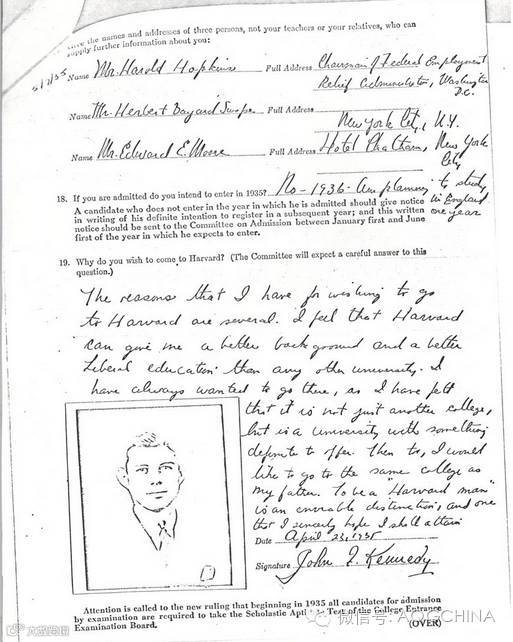 the names and addresses of three persons, not your teachers or your relatives, who can
supply further information about you:
Name Mr. Harold Hopkins Full Address Chairman of Federal Employment
Relief Administration, Washington
D.C.
Name Mr. Herbert Bayard Swope Full Address
New York City, N.Y.
Name Mr. Edward E. Moore Full Address Hotel Chatham, New York
City
18. If you are admitted do you intend to enter in 1935? No - 1936 - Am planning to study
in England
one year
A candidate who does not enter the year in which he is admitted should give notice
in writing of his definite intention to register in a subsequent year; and this written
notice should be sent to the Committee on Admission between January first and June
first of the year in which he expects to enter.
19. Why do you wish to come to Harvard? (The Committee will expect a careful answer to this
question.)
The reasons that I have for wishing to go
to Harvard are several. I feel that Harvard
can give me a better background and a better
liberal education than any other university. I
have always wanted to go there, as I have felt
that it is not just another college,
but is a university with something
definite to offer. Then too, I would
like to go to the same college as
my father. To be a "Harvard man"
is an enviable distinction, and one
that I sincerely hope I shall attain
Date April 23, 1935
Signature John F. Kennedy
Attention is called to the new ruling that beginning in 1935 all candidates for admission
by examination are required to take the Scholastic Aptitude Test of the College Entrance
Examination Board.
(OVER)
微信号: AOFCHINA
大河票务网